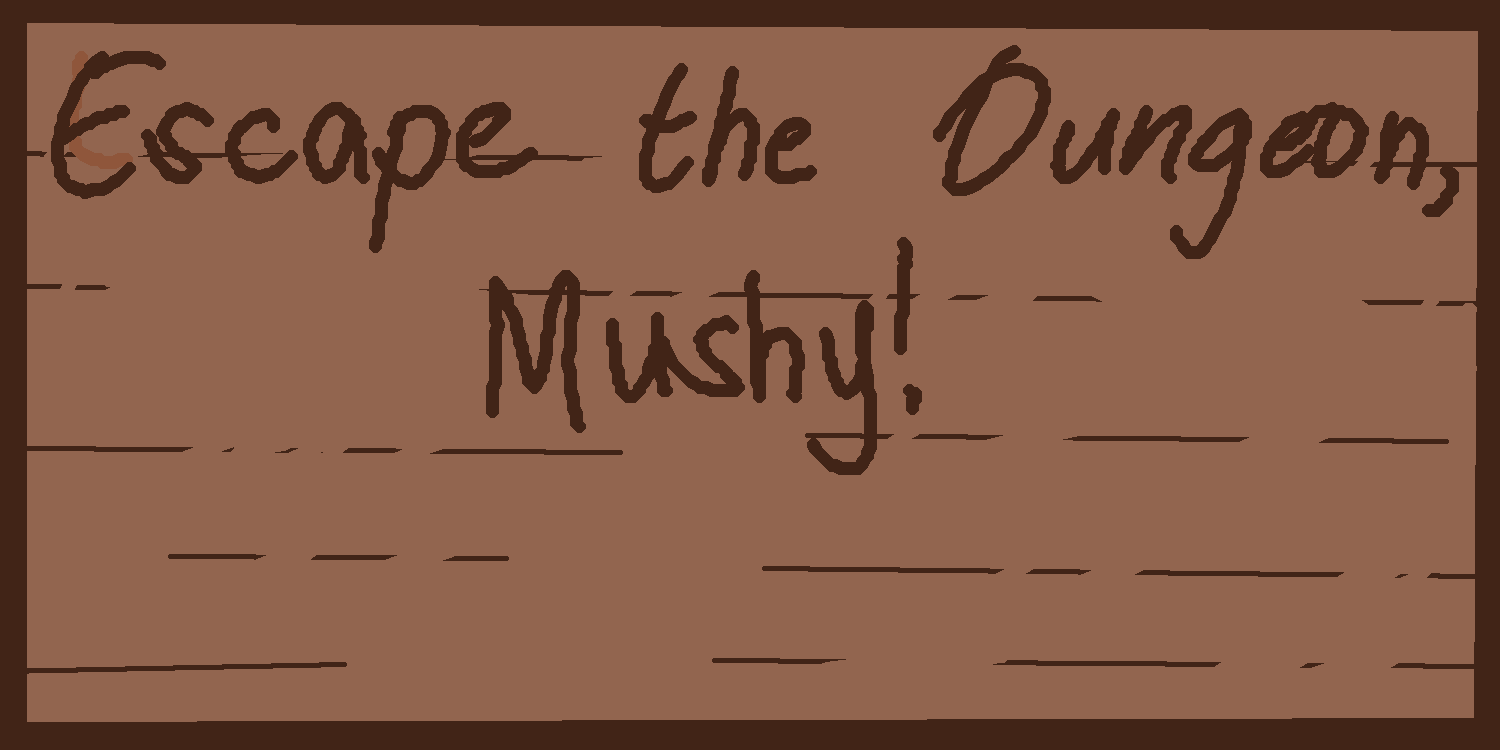 Escape the Dungeon,
Mushy!